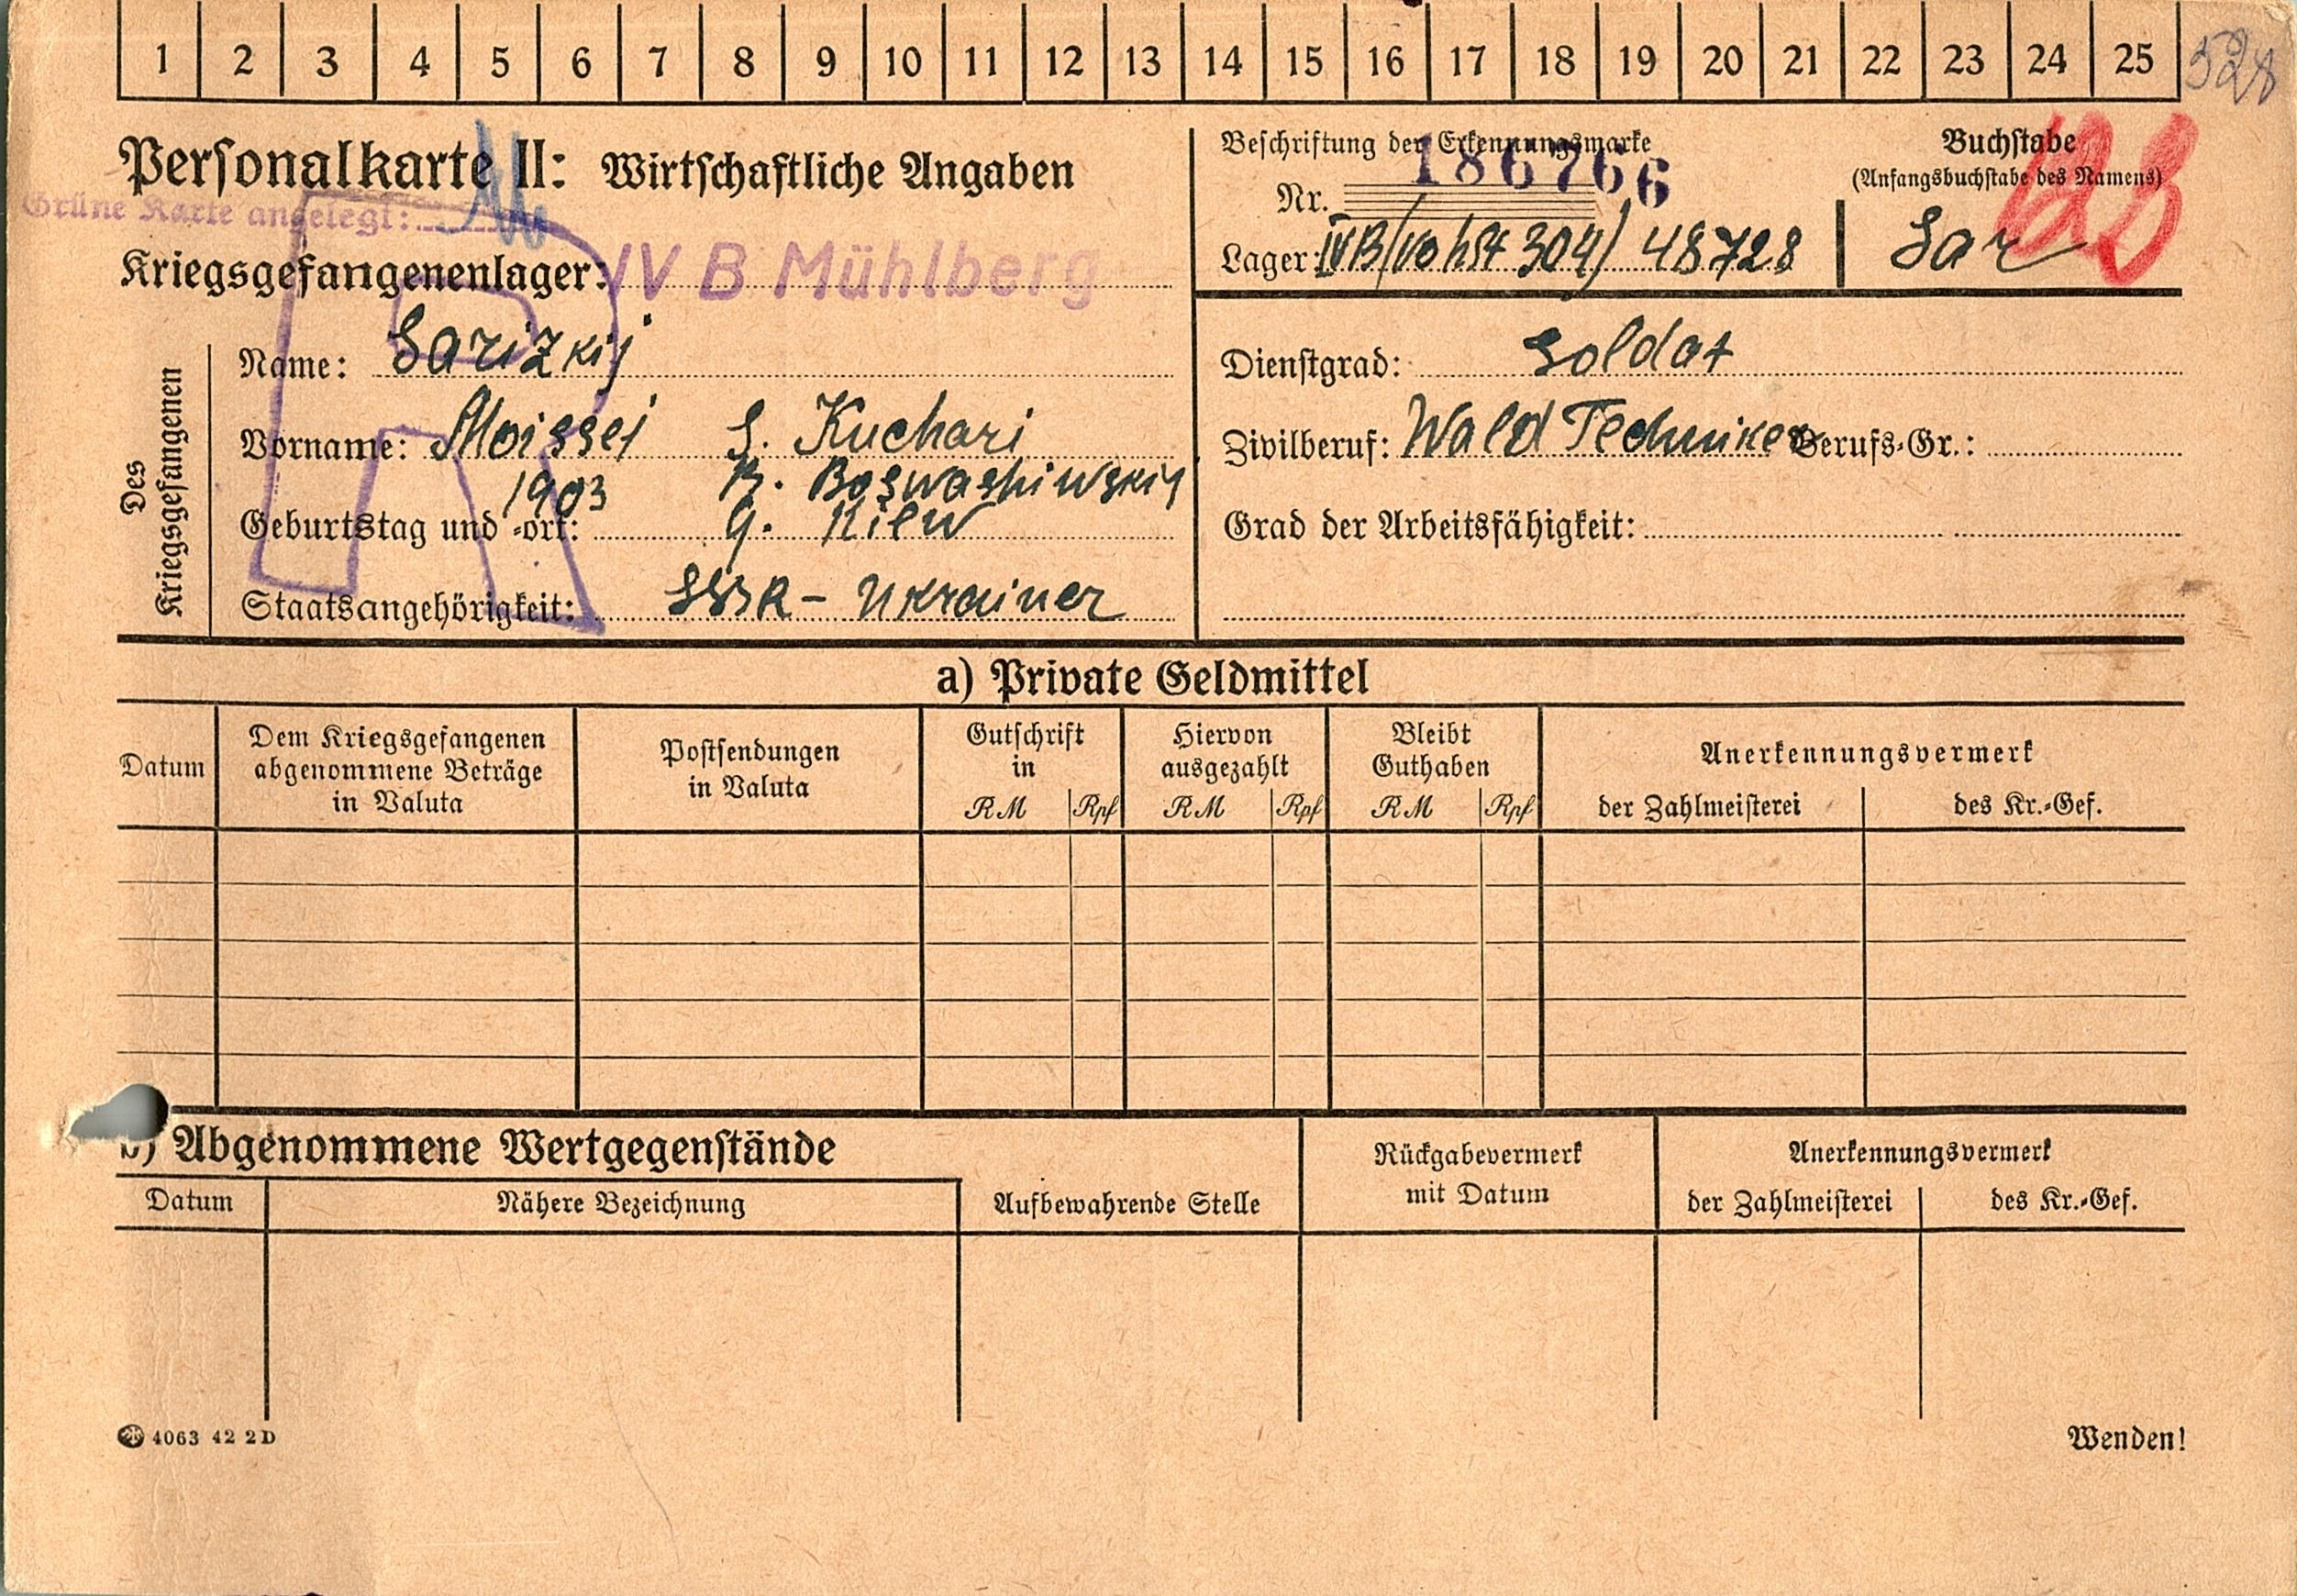 1 2 3 4 5 6 7 8 9 10 11 12 13 14 15 16 17 18 19 20 21 22 23 24 25
528
Personalkarte II: Wirtschaftliche Angaben
Grüne Karte angelegt:
Kriegsgefangenenlager: IV B Mühlberg
Beschriftung der Erkennungsmarke
Nr. 186766
Lager: IVB (vo hSt 304) 48728
Buchstabe
(Anfangsbuchstabe des Namens)
Sar
Des Kriegsgefangenen
Name: Sarizkij
Vorname: Moissei S. Kuchari
1903 R. Boswashiwskij
Geburtstag und =ort: G. Kiew
Staatsangehörigkeit: SSSR - Ukrainer
R
Dienstgrad: Soldat
Zivilberuf: Wald Techniker Berufs=Gr.:
Grad der Arbeitsfähigkeit:
a) Private Geldmittel
Datum
Dem Kriegsgefangenen
abgenommene Beträge
in Valuta
Postsendungen
in Valuta
Gutschrift
in
RM Rpf
Hiervon
ausgezahlt
RM Rpf
Bleibt
Guthaben
RM Rpf
Anerkennungsvermerk
der Zahlmeisterei des Kr.=Gef.
b) Abgenommene Wertgegenstände
Datum Nähere Bezeichnung
Aufbewahrende Stelle
Rückgabevermerk
mit Datum
Anerkennungsvermerk
der Zahlmeisterei des Kr.=Gef.
4063 42 2D
Wenden!